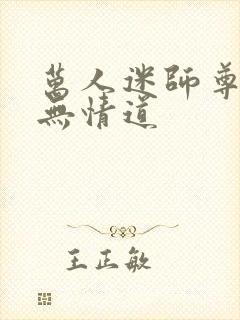 萬人迷師尊
無情道
王正敏